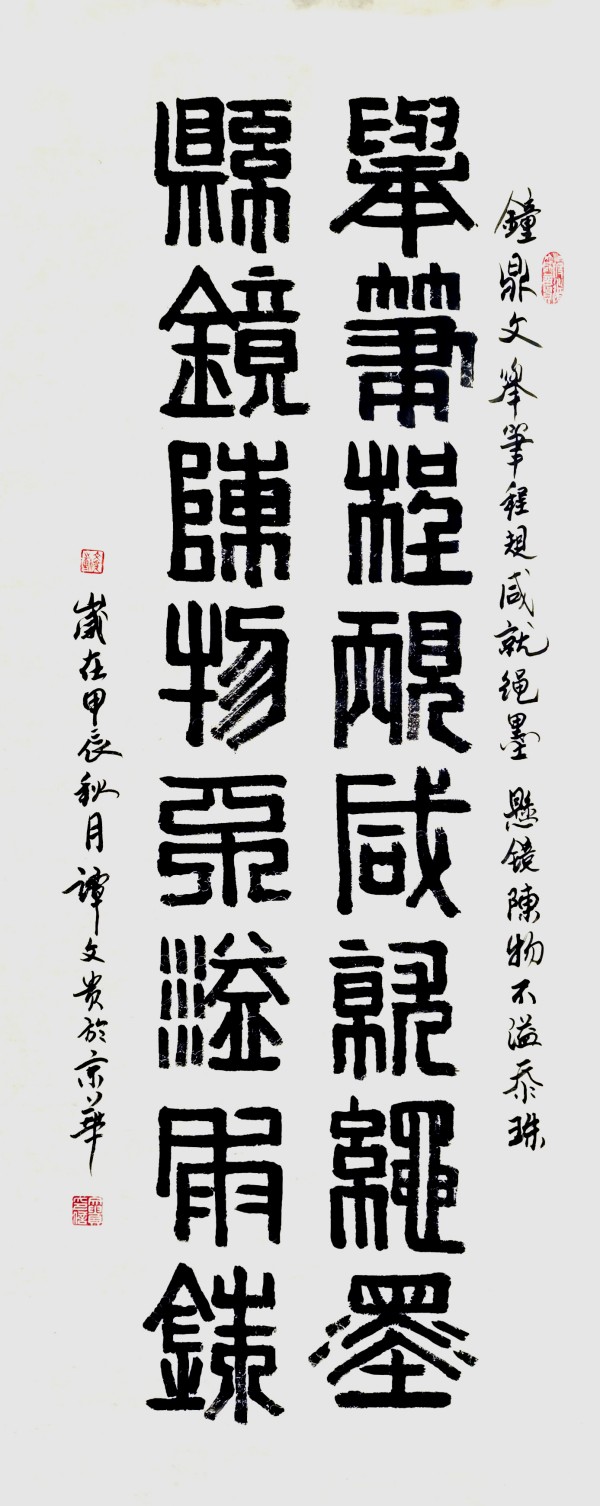 鐘鼎文舉筆程規咸就绳墨 懸鏡陳物不溢珠
舉筆程規咸就繩墨
縣鏡陳物不溢銖
歲在甲辰秋月譚文贵於京華